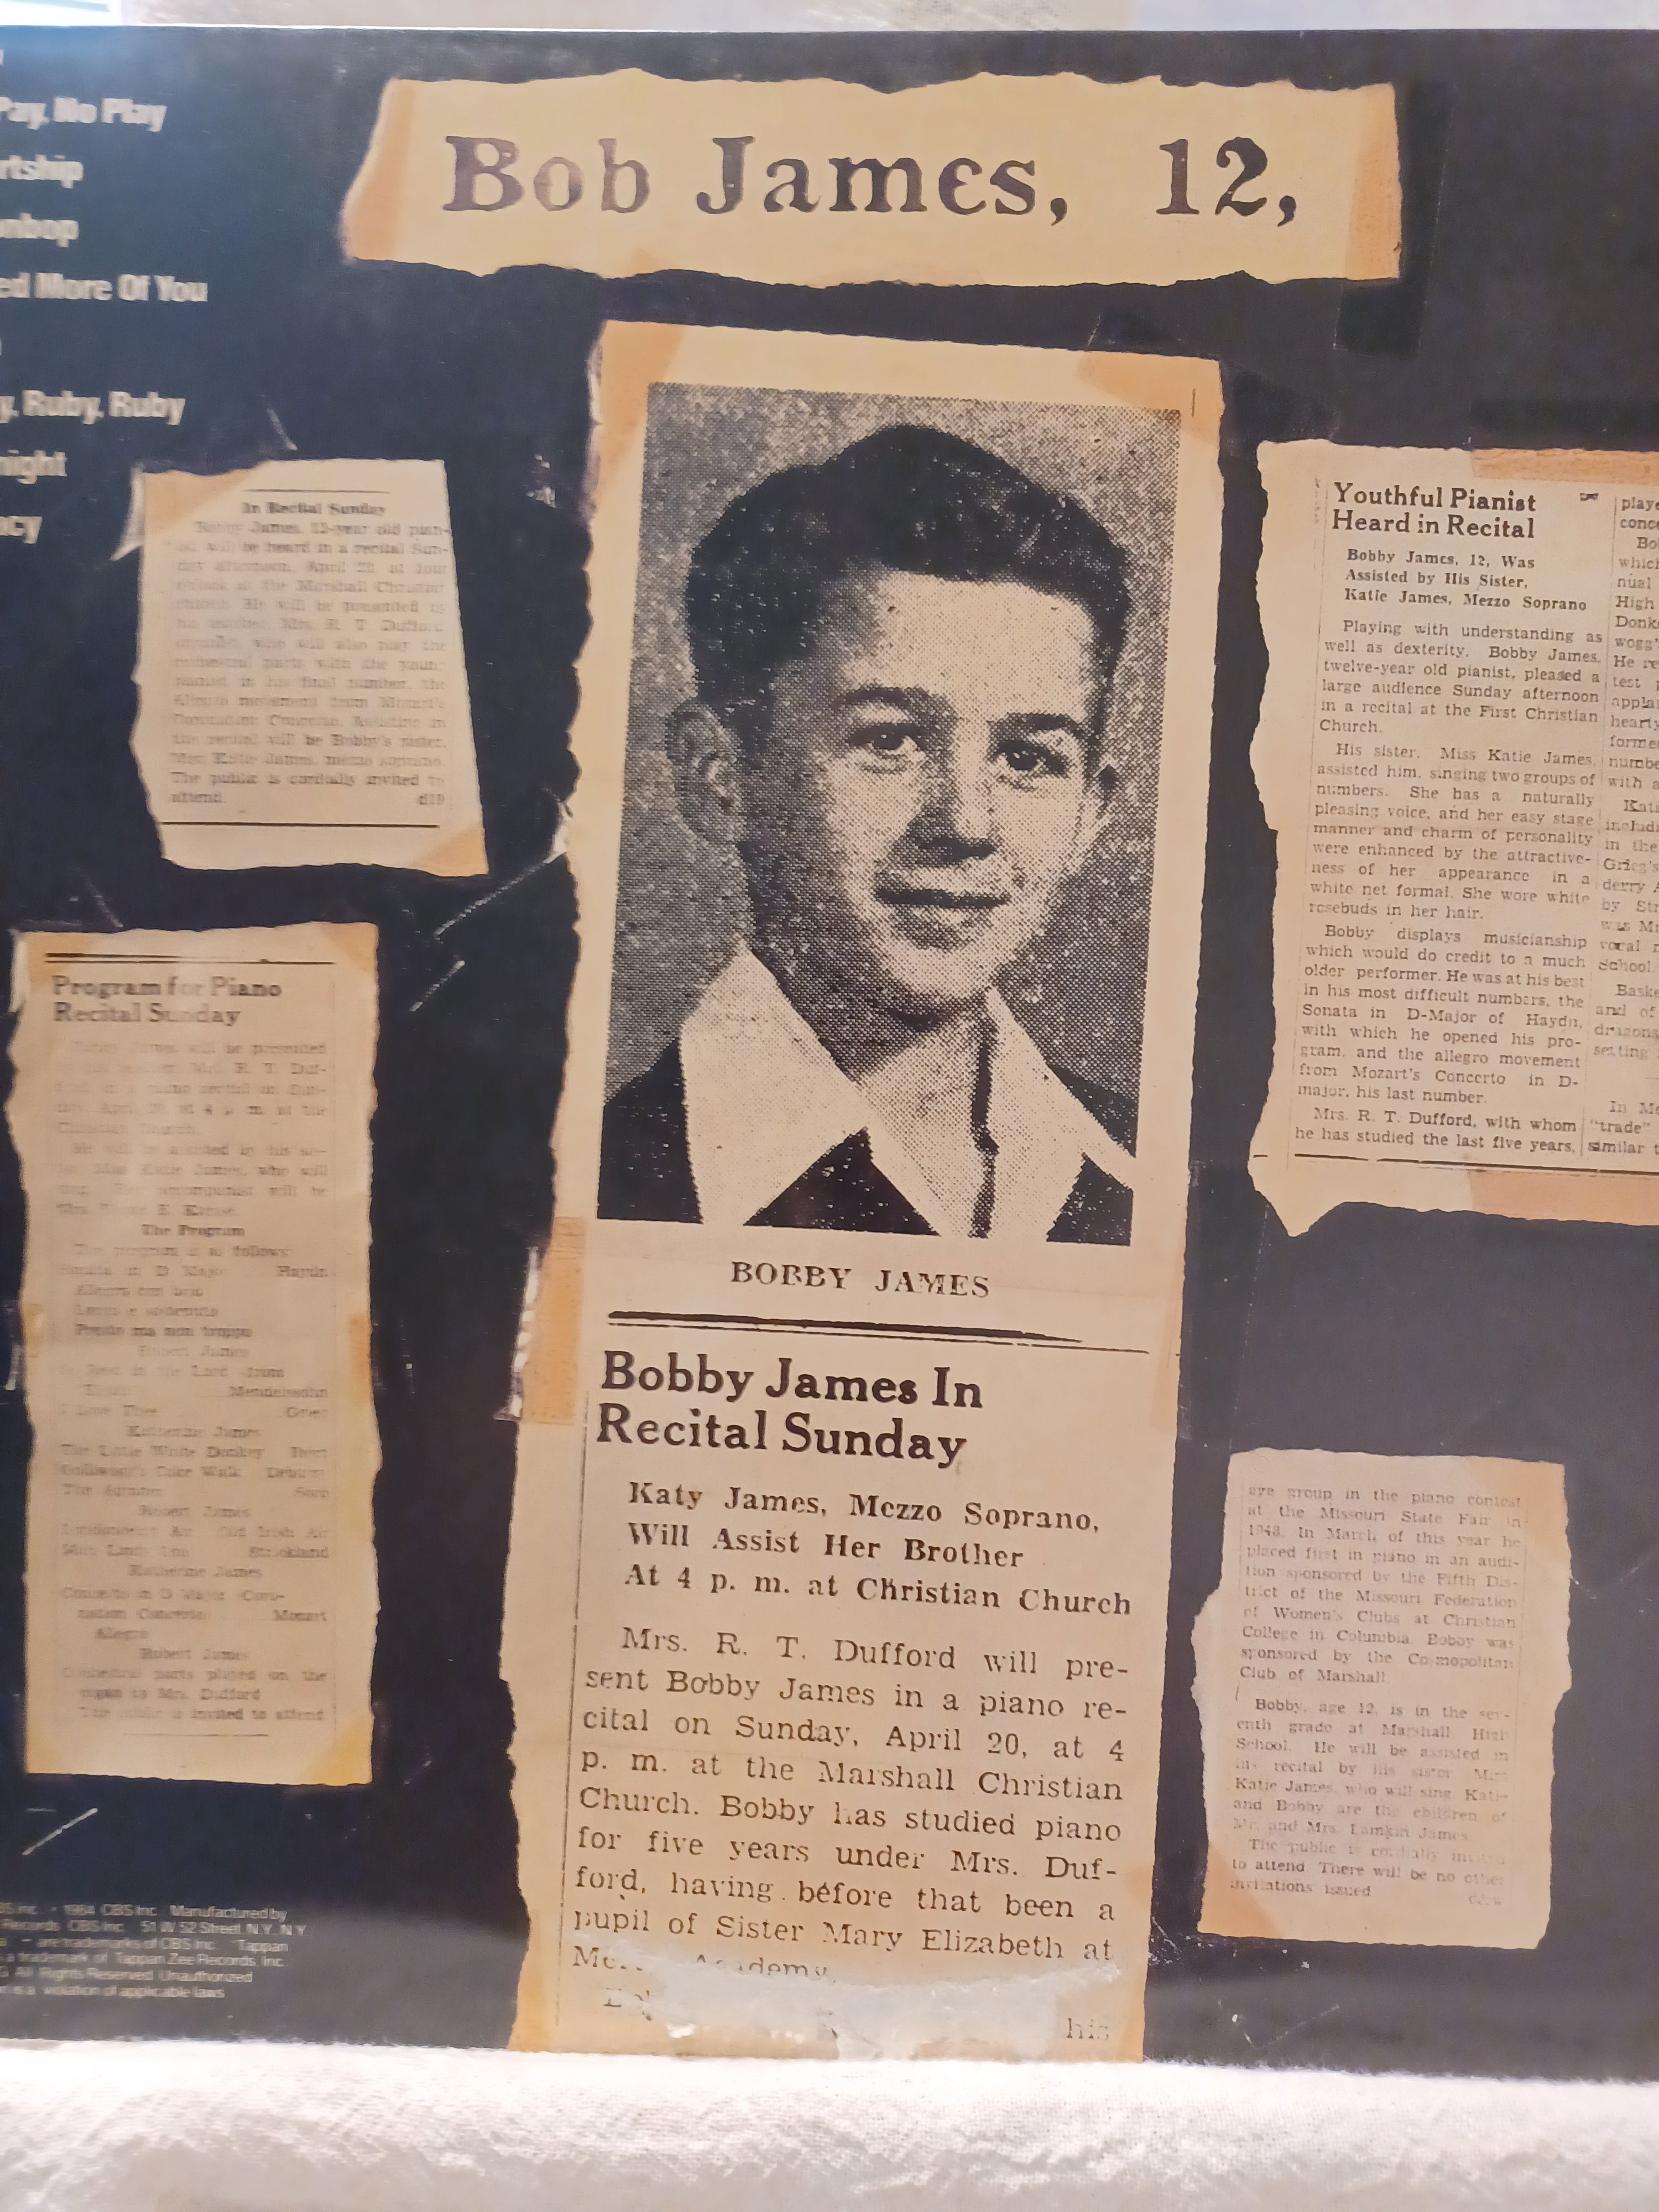 Pay, No Play
rtship
nbop
ed More Of You
y, Ruby, Ruby
night
acy
Bob James, 12,
In Recital Sunday
Bobby James, 12-year old pian-
will be heard in a recital Sun-
day afternoon, April 20, at four
o'clock at the Marshall Christian
church. He will be presented
his teacher, Mrs. R. T. Dufford,
who will also play the
orchestral parts with the young
pianist in his final number, the
Allegro movement from Mozart's
Coronation Concerto. Assisting in
the recital will be Bobby's sister,
Miss Katie James, mezzo soprano.
The public is cordially invited to
attend.
Program for Piano
Recital Sunday
James will be presented
Mrs. R. T. Duf-
piano recital on Sun-
April 20, at 4 p. m. at the
Christian Church.
He will be assisted by his sis-
Miss Katie James, who will
accompanist will be
The Program
The program is as follows:
Sonata in D Major Haydn
Allegro con brio
Largo e sostenuto
Presto ma non troppo
Robert James
Rest in the Lord from
Mendelssohn
I Love Thee Grieg
Katherine James
The Little White Donkey Ibert
Golliwogg's Cake Walk Debussy
The
Robert James
Londonderry Air Old Irish Air
Lindy Lou Strickland
Katherine James
Concerto in D Major (Coro-
nation Concerto) Mozart
Allegro
Robert James
Orchestral parts played on the
organ by Mrs. Dufford
The public is invited to attend
BOBBY JAMES
Bobby James In
Recital Sunday
Katy James, Mezzo Soprano,
Will Assist Her Brother
At 4 p. m. at Christian Church
Mrs. R. T. Dufford will pre-
sent Bobby James in a piano re-
cital on Sunday, April 20, at 4
p. m. at the Marshall Christian
Church. Bobby has studied piano
for five years under Mrs. Duf-
ford, having before that been a
pupil of Sister Mary Elizabeth at
his
Youthful Pianist
Heard in Recital
Bobby James, 12, Was
Assisted by His Sister,
Katie James, Mezzo Soprano
Playing with understanding as
well as dexterity, Bobby James,
twelve-year old pianist, pleased a
large audience Sunday afternoon
in a recital at the First Christian
Church.
His sister, Miss Katie James,
assisted him, singing two groups of
numbers. She has a naturally
pleasing voice, and her easy stage
manner and charm of personality
were enhanced by the attractive-
ness of her appearance in a
white net formal. She wore white
rosebuds in her hair.
Bobby displays musicianship
which would do credit to a much
older performer. He was at his best
in his most difficult numbers, the
Sonata in D-Major of Haydn,
with which he opened his pro-
gram, and the allegro movement
from Mozart's Concerto in D-
major, his last number.
Mrs. R. T. Dufford, with whom
he has studied the last five years,
playe
conce
Bo
which
nual
High
Donke
wogg'
He re
test
appla
hearty
forme
numbe
with a
Kati
includi
in the
Grieg's
derry A
by Str
was M
vocal
School
Baske
and of
dragons
setting
In Me
"trade"
similar t
age group in the piano contest
at the Missouri State Fair in
1948. In March of this year he
placed first in piano in an audi-
tion sponsored by the Fifth Dis-
trict of the Missouri Federation
of Women's Clubs at Christian
College in Columbia. Bobby was
sponsored by the Cosmopolitan
Club of Marshall.
Bobby, age 12, is in the sev-
enth grade at Marshall High
School. He will be assisted in
his recital by his sister Miss
Katie James, who will sing. Katie
and Bobby are the children of
Mr. and Mrs. Lamkin James.
The public is cordially invited
to attend. There will be no other
invitations issued.
BS Inc. • 1984 CBS Inc. Manufactured by
Records CBS Inc. 51 W. 52 Street, N.Y., N.Y.
are trademarks of CBS Inc. "Tappan
a trademark of Tappan Zee Records, Inc.
All Rights Reserved. Unauthorized
is a violation of applicable laws